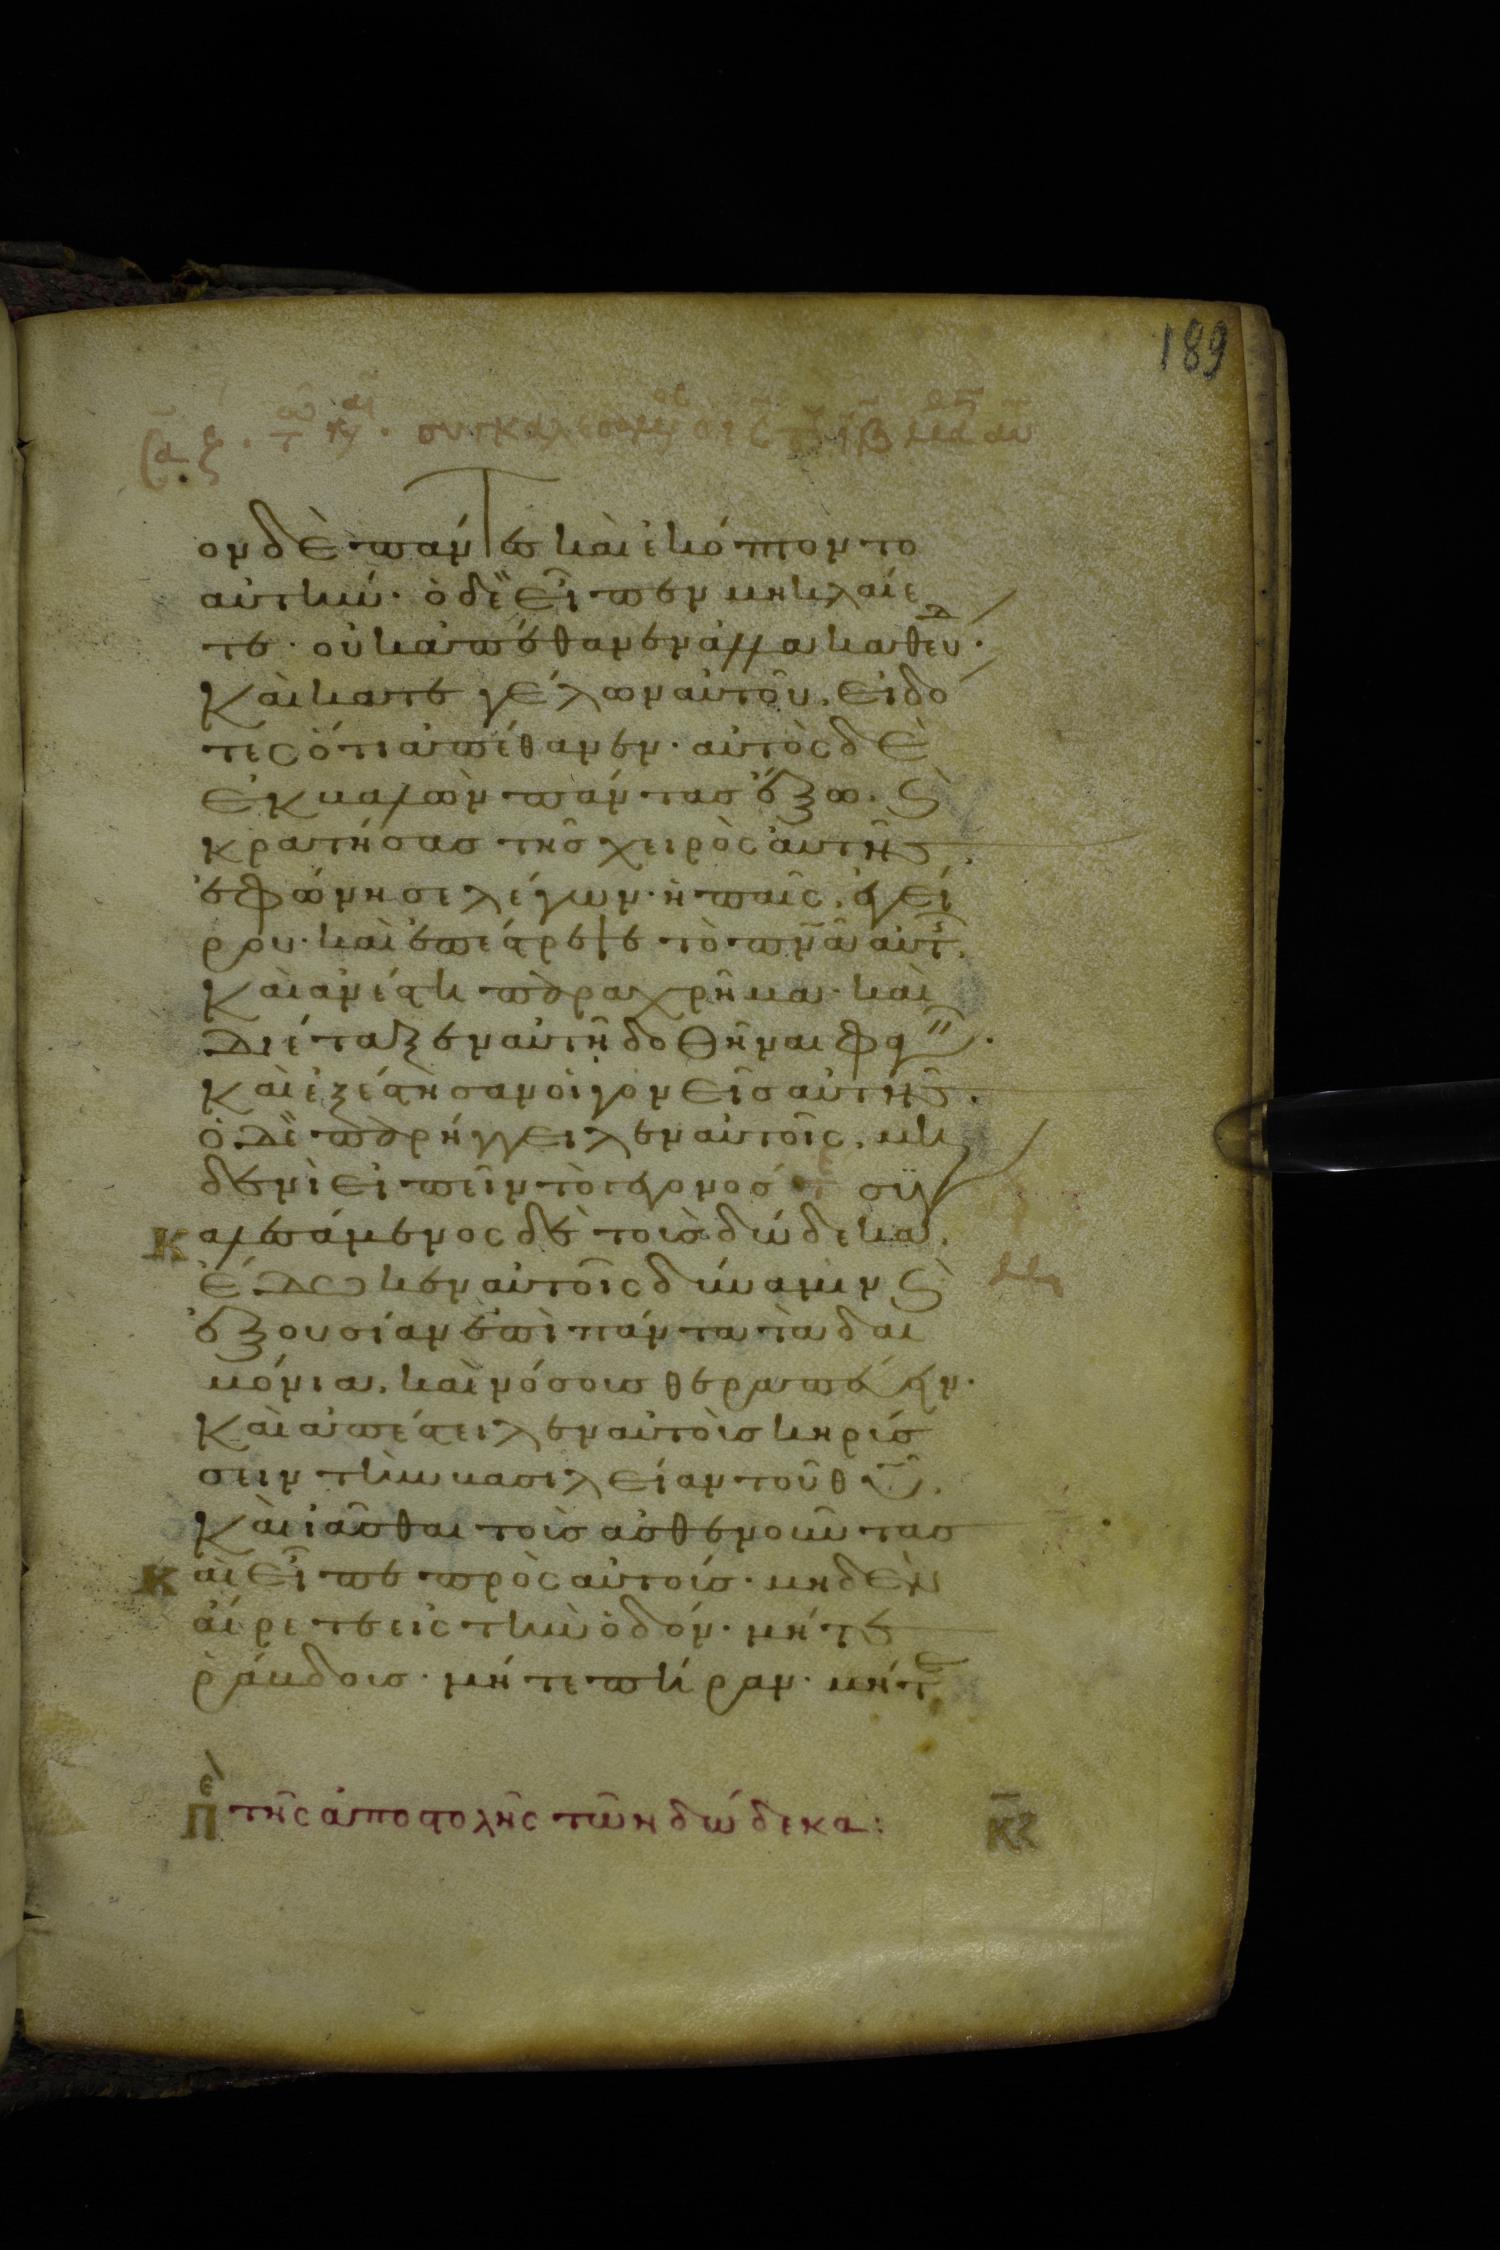 189
συγκαλεσάμενος
ον δὲ πάντες καὶ ἐκόπτοντο
αὐτήν· ὁ δὲ εἶπεν μὴ κλαίε
τε· οὐκ ἀπέθανεν ἀλλὰ καθεύδ·
Καὶ κατεγέλων αὐτοῦ, εἰδό
τες ὅτι ἀπέθανεν· αὐτὸς δὲ
ἐκβαλὼν πάντας ἔξω· ϗ
κρατήσας τῆς χειρὸς αὐτῆς,
ἐφώνησε λέγων· ἡ παῖς, ἐγεί
ρου· καὶ ἐπέστρεψε τὸ πνᾶ αὐτῆ,
Καὶ ἀνέστη παραχρῆμα· καὶ
διέταξεν αὐτῆ δοθῆναι φαγεῖν·
Καὶ ἐξέστησαν οἱ γονεῖς αὐτῆς·
ὁ δὲ παρήγγειλεν αὐτοῖς, μη
δενὶ εἰπεῖν τὸ γεγονός συγ
Καλεσάμενος δὲ τοὺς δώδεκα,
ἔδωκεν αὐτοῖς δύναμιν ϗ
ἐξουσίαν ἐπὶ πάντα τὰ δαι
μόνια, καὶ νόσους θεραπεύειν·
Καὶ ἀπέστειλεν αὐτοὺς κηρύσ
σειν τὴν βασιλείαν τοῦ θυ,
Καὶ ἰᾶσθαι τοὺς ἀσθενοῦντας
Καὶ εἶπε πρὸς αὐτούς· μηδὲν
αἴρετε εἰς τὴν ὁδόν· μήτε
ῥάβδους· μήτε πήραν· μήτε
Πε τῆς ἀποστολῆς τῶν δώδεκα: κζ